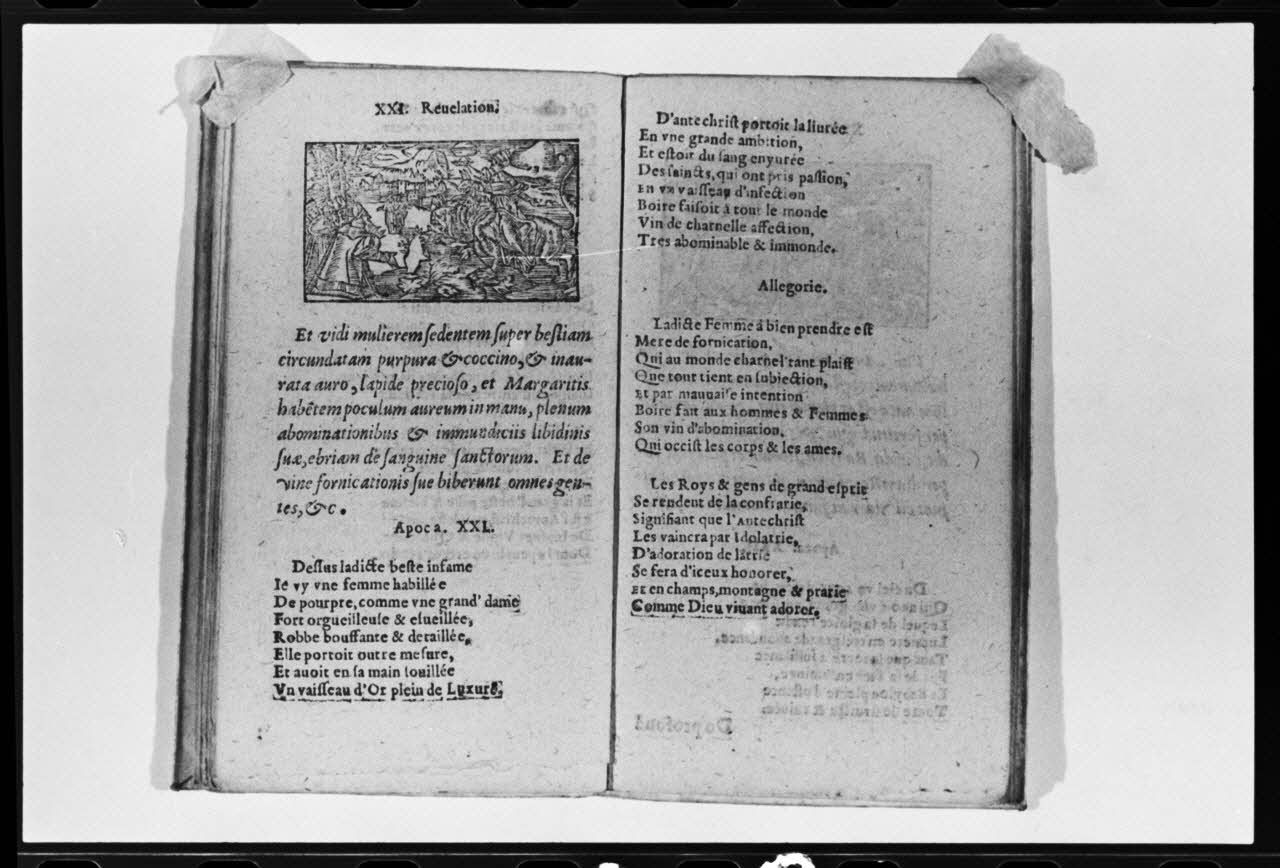 XXI. Reuelation.
Et vidi mulierem sedentem super bestiam
circundatam purpura & coccino, & inau-
rata auro, lapide precioso, et Margaritis
habẽtem poculum aureum in manu, plenum
abominationibus & immundiciis libidinis
suæ, ebriam de sanguine sanctorum. Et de
vine fornicationis sue biberunt omnes gen-
tes, &c.
Apoca. XXI.
Dessus ladicte beste infame
Ie vy vne femme habillée
De pourpre, comme vne grand' dame
Fort orgueilleuse & esueillée,
Robbe bouffante & detaillée,
Elle portoit outre mesure,
Et auoit en sa main souillée
Vn vaisseau d'Or plein de Luxure,
D'antechrist portoit la liurée
En vne grande ambition,
Et estoit du sang enyurée
Des saincts, qui ont pris passion,
En vn vaisseau d'infection
Boire faisoit à tout le monde
Vin de charnelle affection,
Tres abominable & immonde.
Allegorie.
Ladicte Femme à bien prendre est
Mere de fornication,
Qui au monde charnel tant plaist
Que tout tient en subiection,
Et par mauuaise intention
Boire fait aux hommes & Femmes
Son vin d'abomination,
Qui occist les corps & les ames.
Les Roys & gens de grand esprit
Se rendent de la confrarie,
Signifiant que l'Antechrist
Les vaincra par Idolatrie,
D'adoration de latrie
Se fera d'iceux honorer,
Et en champs, montagne & prarie
Comme Dieu viuant adorer.